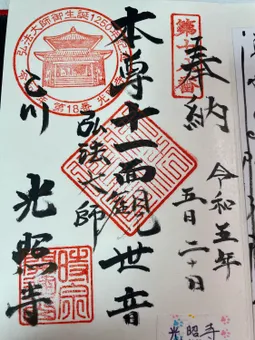 奉納
令和五年
五月二十日
本尊十一面観世音
弘法大師
乙川
光照寺
弘法大師御生誕1250年
第18番
時宗
光照寺